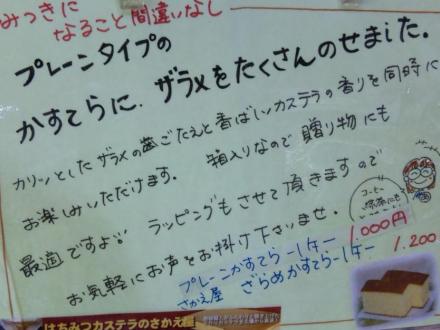 みつきに
なること間違いなし
プレーンタイプの
かすてらに、ザラメをたくさんのせました。
カリッとしたザラメの歯ごたえと香ばしいカステラの香りを同時に
お楽しみいただけます。箱入りなので贈り物にも
最適ですよ!! ラッピングもさせて頂きますので
お気軽にお声をお掛け下さいませ。
コーヒー
緑茶にも
プレーンかすてら一1本一 1,000円
さかえ屋 ざらめかすてら一1本一 1,200
はちみつカステラのさかえ屋